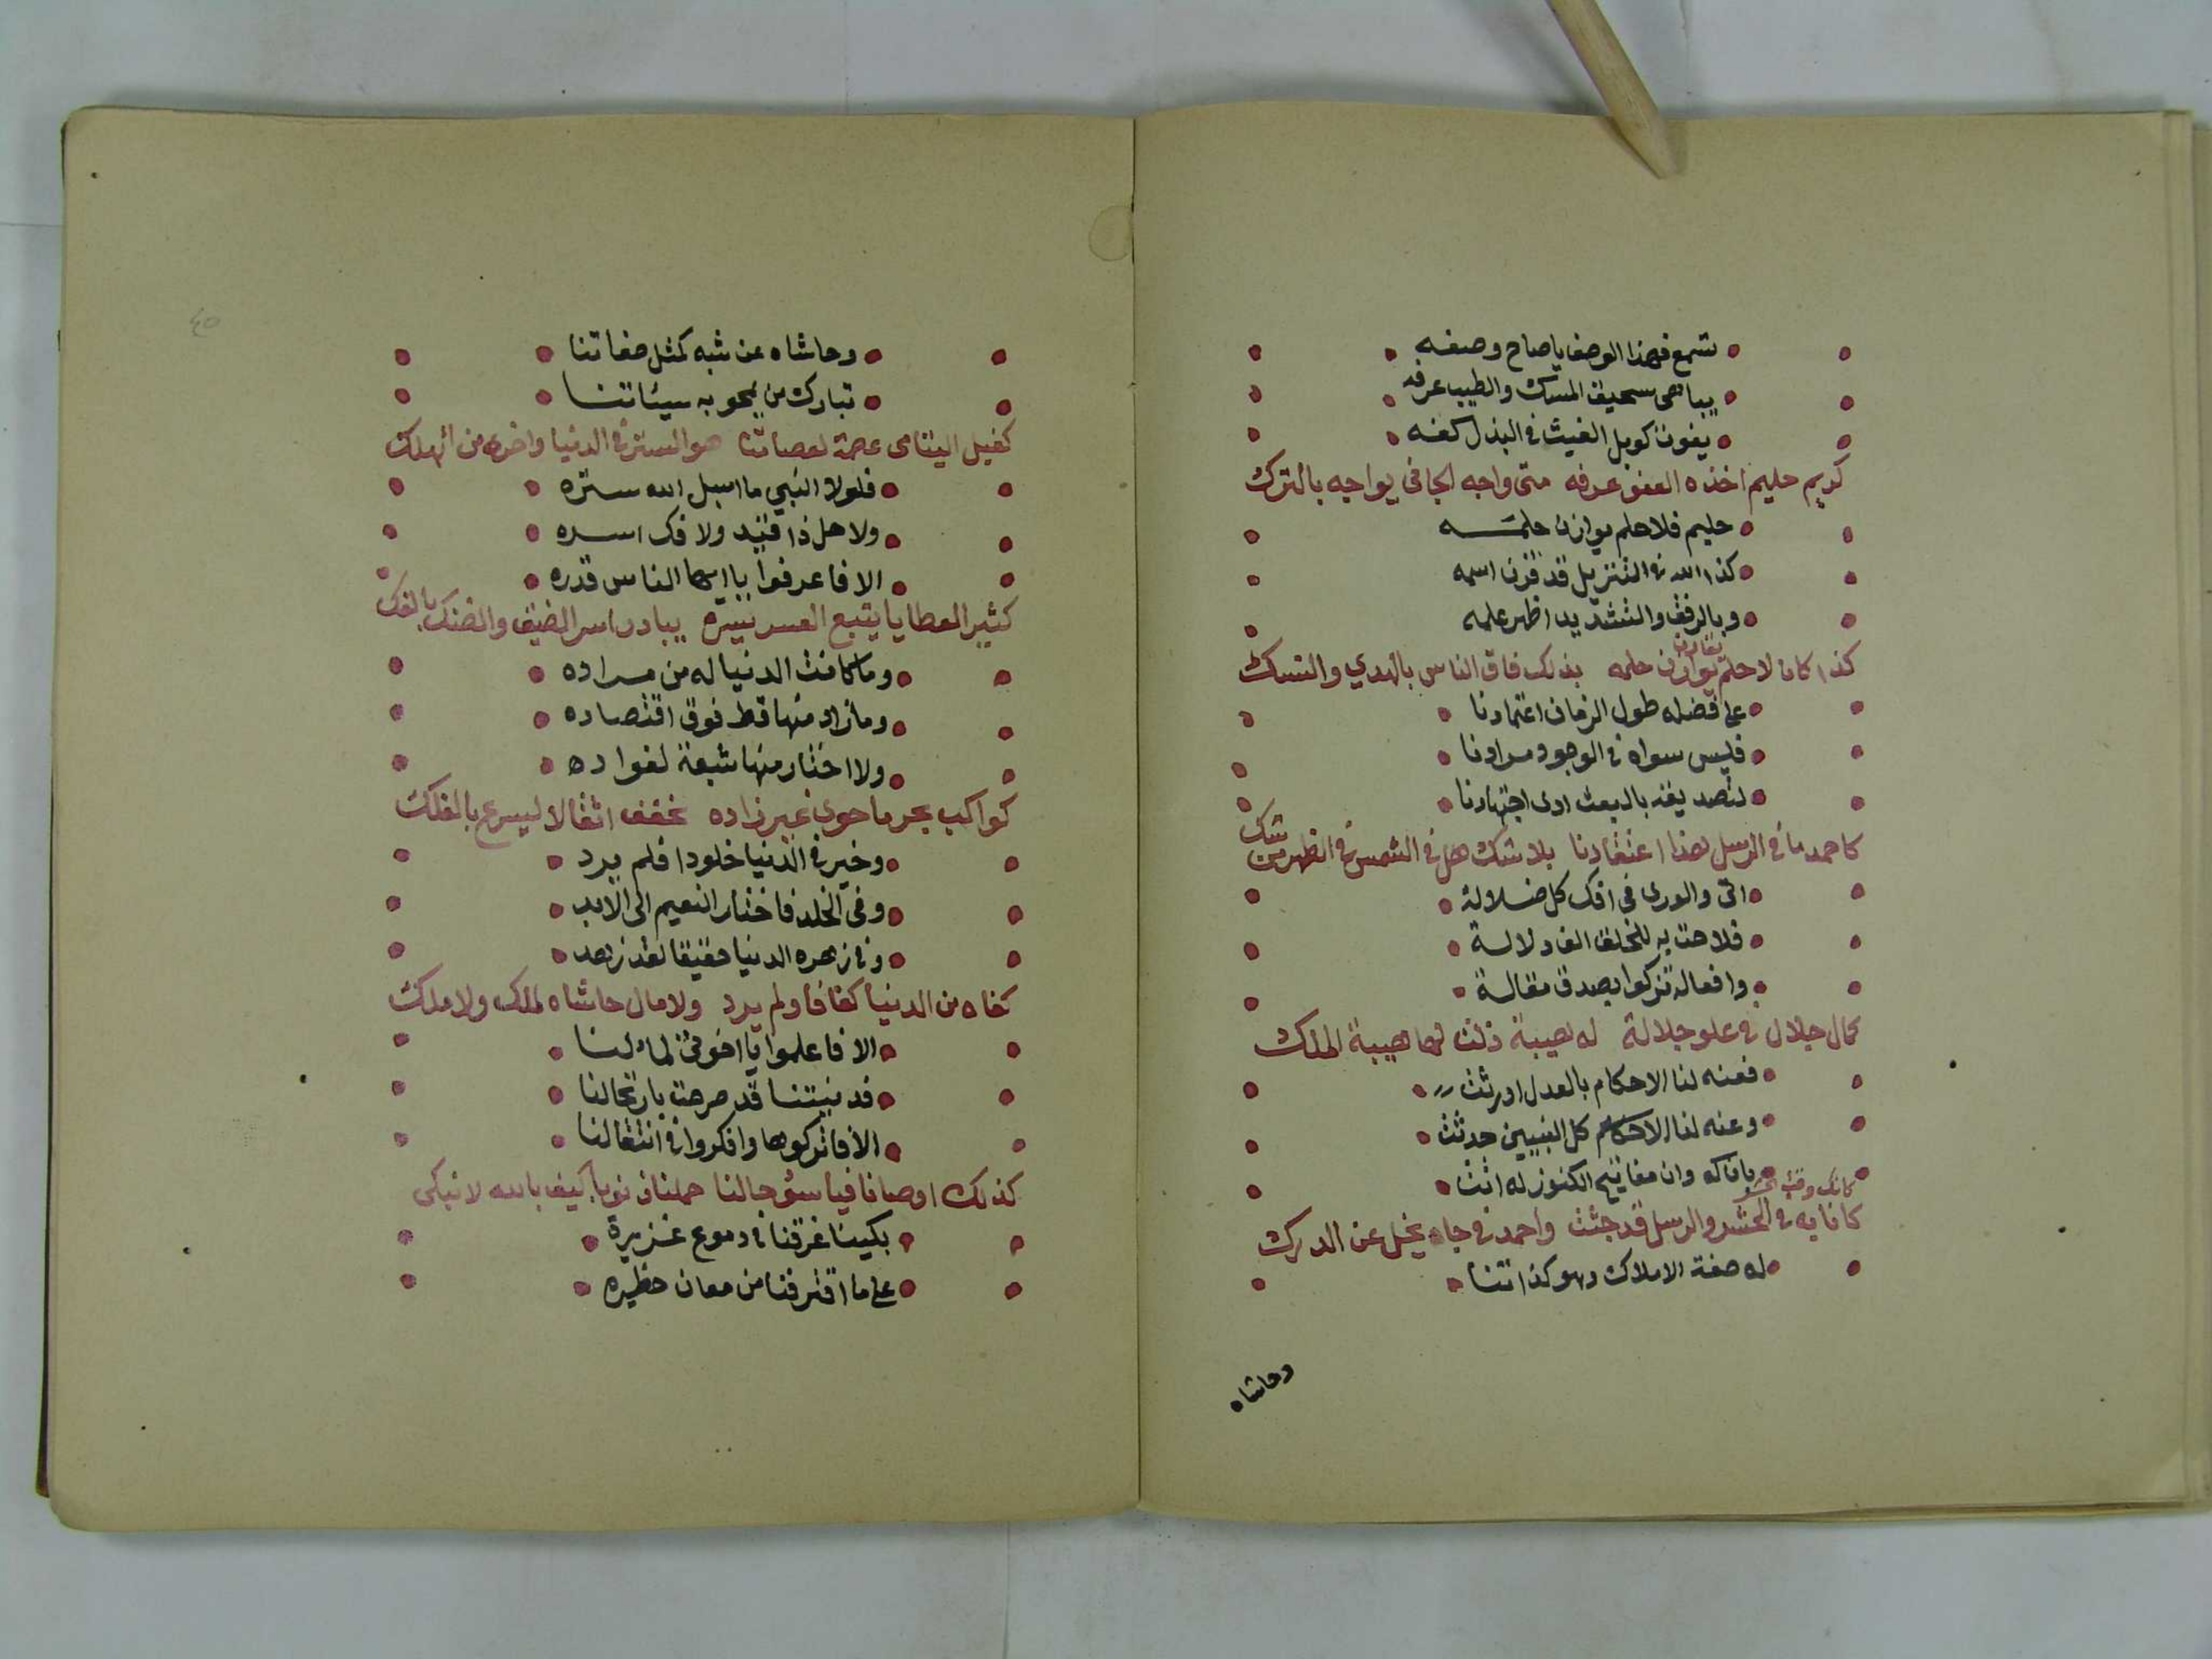 تسمع فهذا الوصف يا صاح وصفه
يباهى سحيق المسك والطيب عرفه
يفوق كوبل الغيث فى البذل كفه
كريم حليم اخذه العفو عرفه متى واجه الجافى يواجه بالترك
حليم فلا حلم يوازن حلمه
كذا الله فى التنزيل قد قرن اسمه
وبالرفق والتشديد اظهر علمه
يقارن
كذا كان لا حلم يوازن حلمه بذلك فاق الناس بالهدي والنسك
على فضله طول الزمان اعتمادنا
فليس سواه فى الوجود مرادنا
لتصديقه بالبعث ادى اجتهادنا
شك
كاحمد ما فى الرسل هذا اعتقادنا بلا شك هل فى الشمس فى الظهر من
اتى والورى فى افك كل ضلالة
فلاحت به للخلق الف دلالة
وافعاله تزكوا بصدق مقالة
كمال جلال فى علو جلالة له هيبة ذلت لها هيبة الملك
فعنه لنا الاحكام بالعدل اورثت
وعنه لنا الاحكام كل النبيين حدثت
وان مفاتيح الكنوز له اتت
كانك وقت الحشر
كانا به فى الحشر والرسل قد جثت واحمد فى جاه يجل عن الدرك
له صفة الاملاك وهو كذاتنا
وحاشاه
٤٥
وحاشاه عن شبه كمثل صفاتنا
تبارك من يمحو به سيئاتنا
كفيل اليتامى عصمة لعصاتنا هو الستر فى الدنيا واخرى من الهلك
فلولا النبي ما اسبل الله ستره
ولا حل ذا قيد ولا فك اسره
الا فاعرفوا يا ايها الناس قدره
كثير العطايا يتبع العسر يسره يبادر اسر الضيق والضنك بالفك
وما كانت الدنيا له من مراده
وما زاد منها قط فوق اقتصاده
ولا اختار منها شبعة لفواده
كواكب بحر ما حوى غير زاده تخفف اثقالا ليسرع بالفلك
وخير فى الدنيا خلودا فلم يرد
وفى الخلد فاختار النعيم الى الابد
وفى زهره الدنيا حقيقا لقد زهد
كفاه من الدنيا كفافا ولم يرد ولا مال حاشاه لملك ولا ملك
الا فاعلموا يا اخوتى لما لنا
قد صرحت بارتحالنا
الا فاتركوها وافكروا فى انتقالنا
كذلك اوصانا فيا سوء حالنا حملنا ذنوبا كيف بالله لا نبكى
بكينا غرقنا فى دموع غزيرة
على ما اقترفنا من معان خطيره